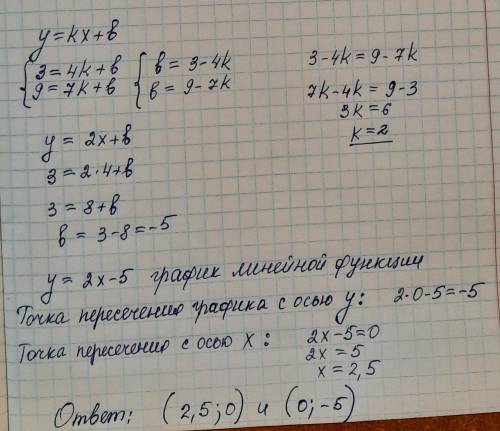 y = kx + в
{ 3 = 4k + в { в = 3 - 4k
{ 9 = 7k + в { в = 9 - 7k
3 - 4k = 9 - 7k
7k - 4k = 9 - 3
3k = 6
k = 2
y = 2x + в
3 = 2·4 + в
3 = 8 + в
в = 3 - 8 = -5
y = 2x - 5 график линейной функции
Точка пересечению графика с осью y: 2·0 - 5 = -5
Точка пересечению с осью x: 2x - 5 = 0
2x = 5
x = 2,5
Ответ: (2,5; 0) и (0; -5)